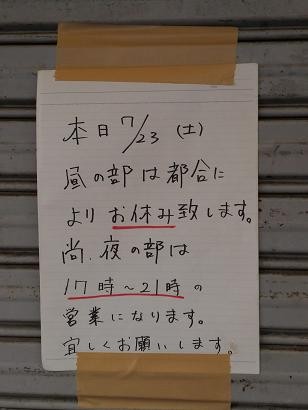 本日7/23(土)
昼の部は都合に
よりお休み致します。
尚、夜の部は
17時~21時の
営業になります。
宜しくお願いします。